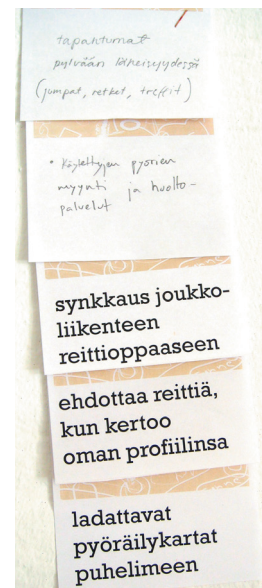 tapahtumat
pylvään läheisyydessä
(jumpat, retket, treffit)
• Käytettyjen pyörien
myynti ja huolto-
palvelut
synkkaus joukko-
liikenteen
reittioppaaseen
ehdottaa reittiä,
kun kertoo
oman profiilinsa
ladattavat
pyöräilykartat
puhelimeen